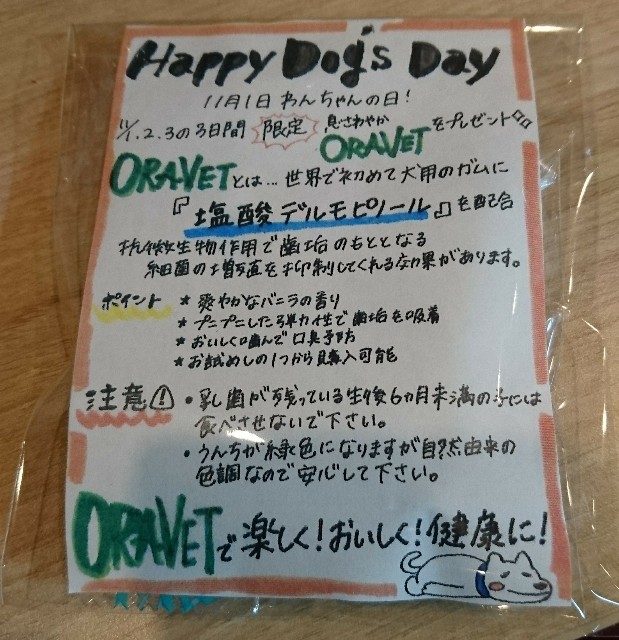 Happy Dog's Day
11月1日 わんちゃんの日!
11/1.2.3の3日間 限定 息さわやか ORAVET をプレゼント
ORAVETとは…世界で初めて犬用のガムに
『塩酸デルモピノール』を配合
抗微生物作用で歯垢のもととなる
細菌の増殖を抑制してくれる効果があります。
ポイント * 爽やかなバニラの香り
* プニプニした弾力性で歯垢を吸着
* おいしく噛んで口臭予防
* お試めしの1つから購入可能
注意! ・乳歯が残っている生後6ヵ月未満の子には
食べさせないで下さい。
・うんちが緑色になりますが自然由来の
色調なので安心して下さい。
ORAVETで楽しく!おいしく!健康に!